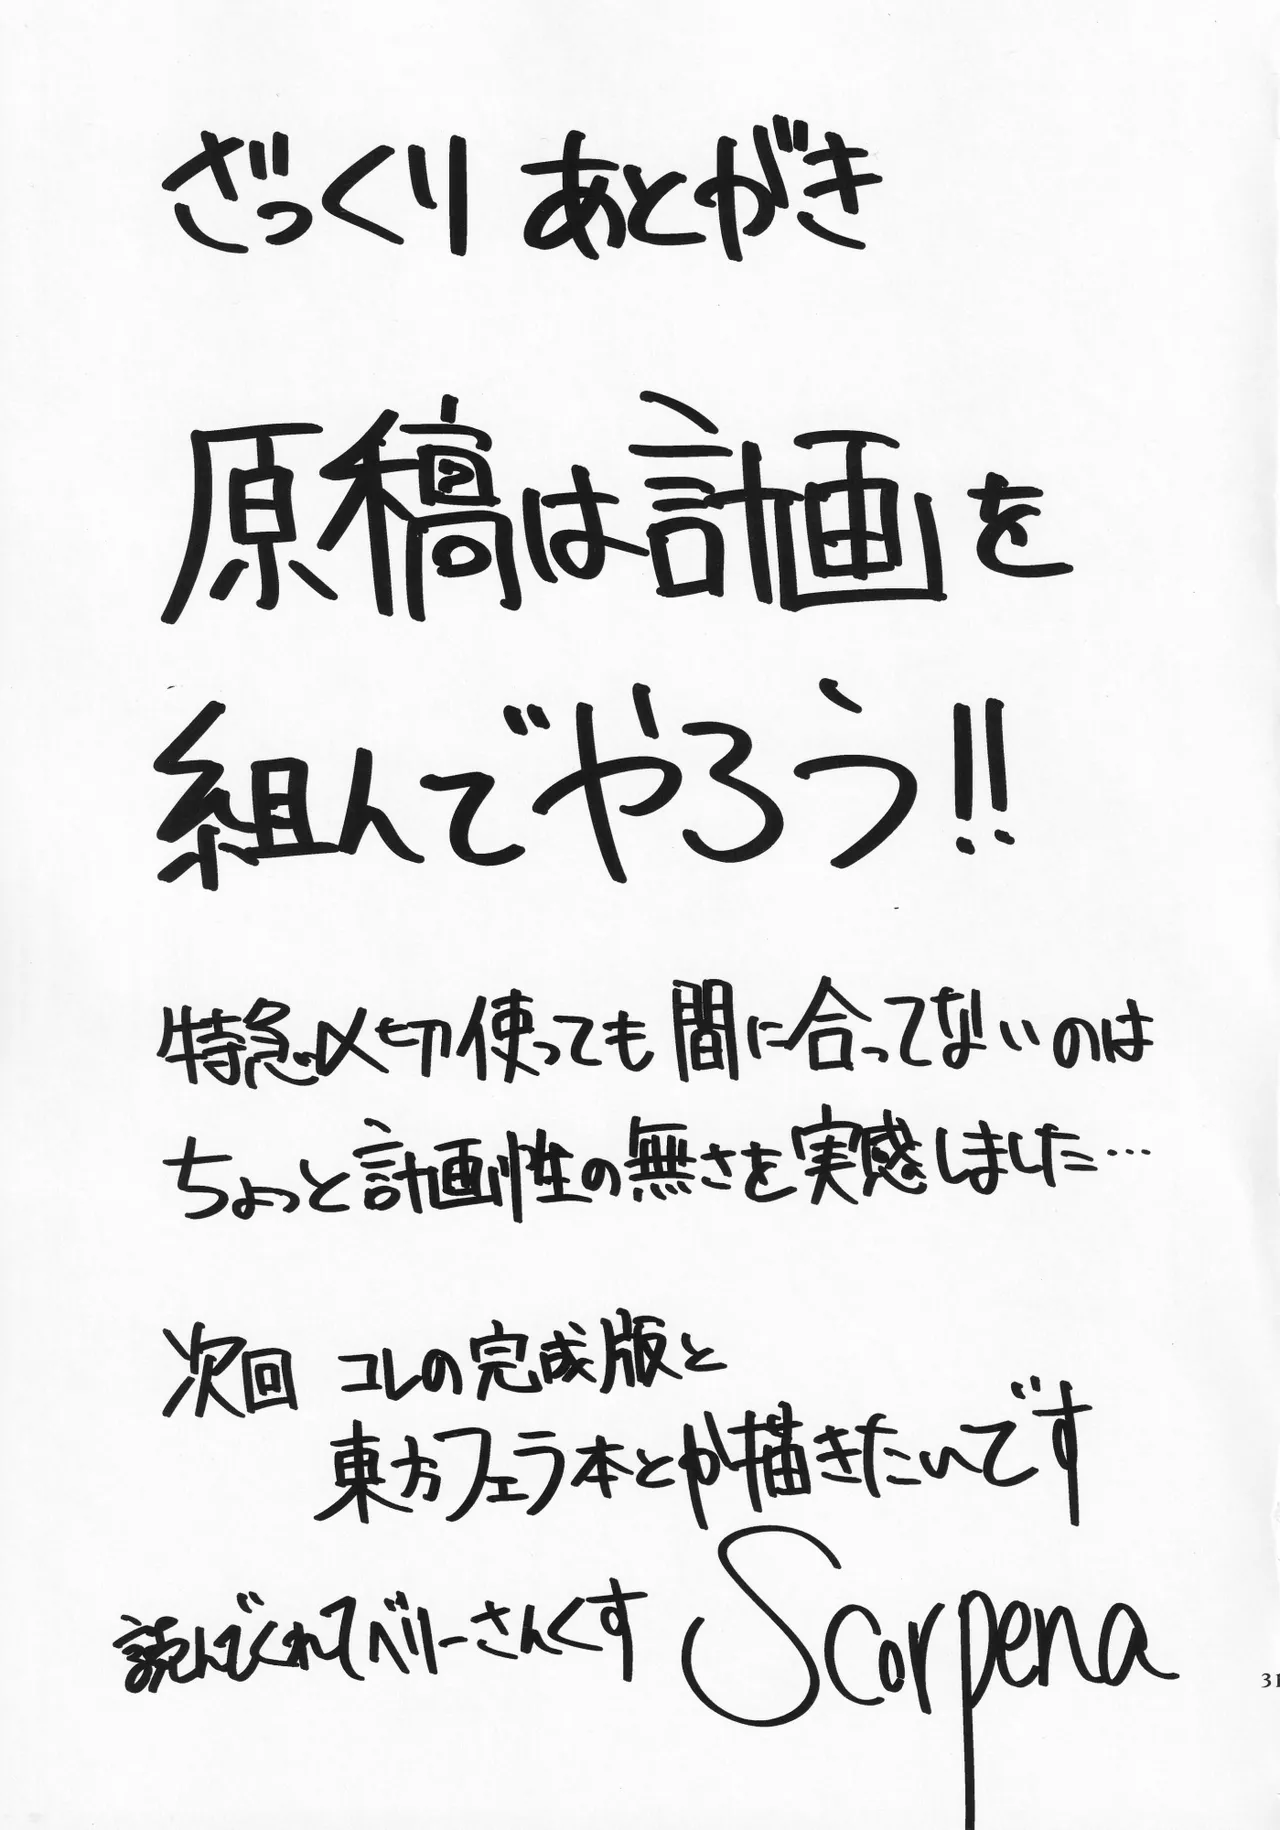 ざっくり あとがき
原稿は計画を
組んでやろう!!
特急〆切使っても間に合ってないのは
ちょっと計画性の無さを実感しました…
次回 コレの完成版と
東方フェラ本とか描きたいです
読んでくれてベリーさんくす
Scorpena
31